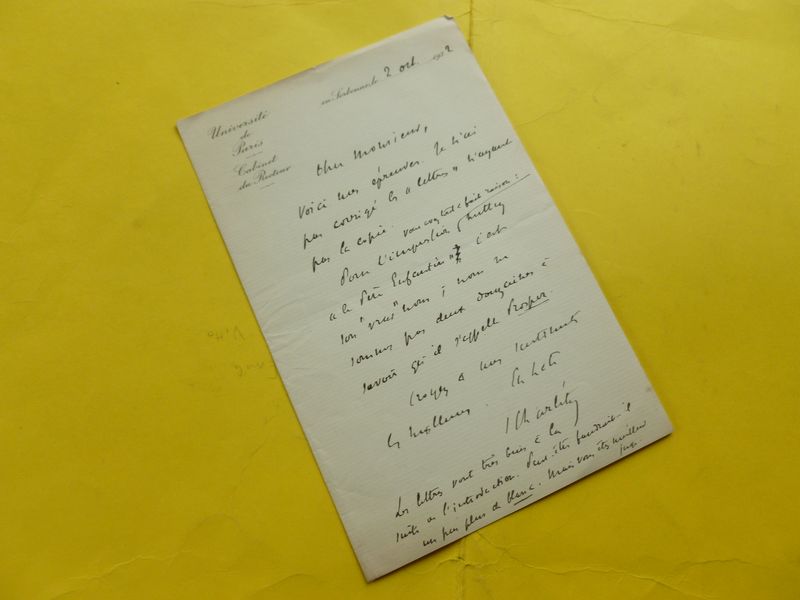 Université
de
Paris
Cabinet
du Recteur
en Sorbonne, le 2 oct. 1932
Cher Monsieur,
Voici mes épreuves. Je n'ai
pas corrigé les "lettres" n'ayant
pas la copie.
vous avez tout à fait raison :
Pour l'impression
a le Père Enfantin" c'est
son "vrai" nom ; nous ne
sommes pas deux douzaines à
savoir qu'il s'appelle Prosper.
Croyez à mes sentiments
les meilleurs. En hâte
S Charléty
Les lettres vont très bien à la
suite de l'introduction. Peut-être faudrait-il
un peu plus de blanc. Mais vous êtes meilleur
juge